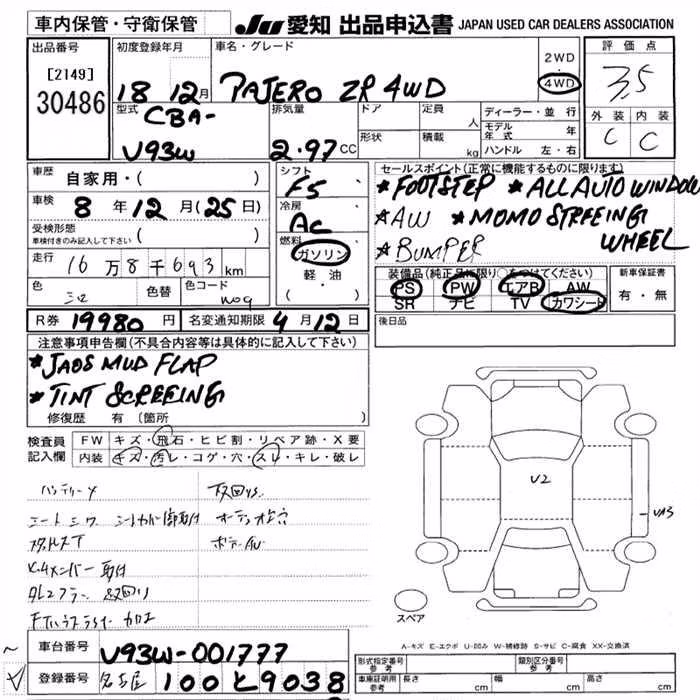 車内保管・守衛保管
JU 愛知 出品申込書 JAPAN USED CAR DEALERS ASSOCIATION
出品番号
[2149]
30486
初度登録年月
18 12月
車名・グレード
PAJERO ZR 4WD
2WD
4WD
評価点
3.5
外装 内装
C C
型式
CBA-
V93W
排気量
2.97 CC
ドア
形状
定員 人
積載 kg
ディーラー・並行
モデル年式 年
ハンドル 左・右
車歴 自家用・( )
車検 8年12月(25日)
受検形態
車検付きのみ記入して下さい ( )
走行 16万8千693km
色
色替
色コード
シフト
F5
冷房
AC
燃料
ガソリン
軽・油
( )
セールスポイント(正常に機能するものに限ります)
*FOOTSTEP *ALL AUTO WINDOW
*AW *MOMO STREEING
WHEEL
*BUMPER
装備品(純正品に限り○をつけてください)
PS PW エアB AW
SR ナビ TV カワシート
新車保証書
有・無
R券 19980円
名変通知期限 4月12日
後日品
注意事項申告欄(不具合内容等は具体的に記入して下さい)
*JAOS MUD FLAP
*TINT SCREEING
修復歴 有 (箇所 )
検査員
記入欄
FW キズ・飛石・ヒビ割・リペア跡・X要
内装 キズ・汚レ・コゲ・穴・スレ・キレ・破レ
U2
スペア
A-キズ E-エクボ U-凹み W-補修跡 S-サビ C-腐食 XX-交換済
車台番号 V93W-001777
登録番号 名古屋 100 と 9038
形式指定番号
参考
類別区分番号
参考
車庫証明用
参考
長さ cm
幅 cm
高さ cm